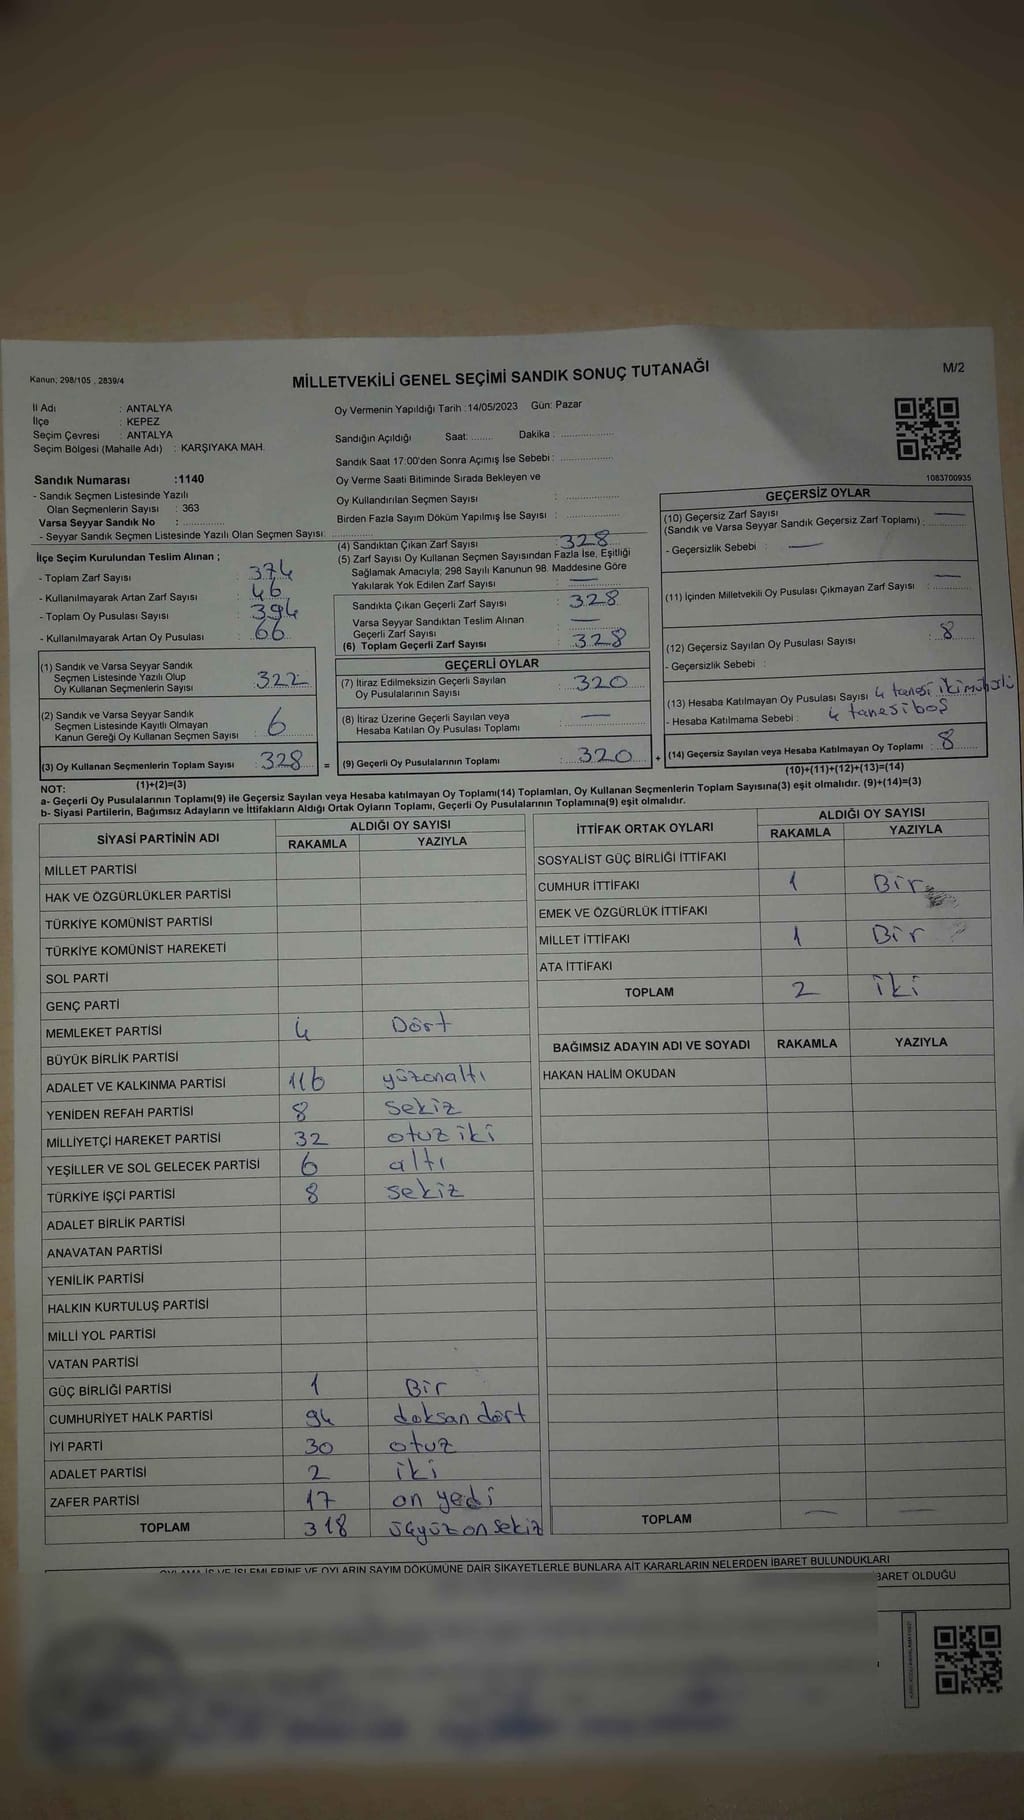 Kanun; 298/105 , 2839/4
MİLLETVEKİLİ GENEL SEÇİMİ SANDIK SONUÇ TUTANAĞI
M/2
İl Adı : ANTALYA
İlçe : KEPEZ
Seçim Çevresi : ANTALYA
Seçim Bölgesi (Mahalle Adı) : KARŞIYAKA MAH.
Oy Vermenin Yapıldığı Tarih : 14/05/2023 Gün: Pazar
Sandığın Açıldığı Saat: ........ Dakika : ................
Sandık Saat 17:00'den Sonra Açımış İse Sebebi : ................
Sandık Numarası :1140
- Sandık Seçmen Listesinde Yazılı
Olan Seçmenlerin Sayısı : 363
Varsa Seyyar Sandık No : ............
- Seyyar Sandık Seçmen Listesinde Yazılı Olan Seçmen Sayısı: ............
Oy Verme Saati Bitiminde Sırada Bekleyen ve
Oy Kullandırılan Seçmen Sayısı : ................
Birden Fazla Sayım Döküm Yapılmış İse Sayısı : ................
1083700935
İlçe Seçim Kurulundan Teslim Alınan ;
- Toplam Zarf Sayısı : 374
- Kullanılmayarak Artan Zarf Sayısı : 46
- Toplam Oy Pusulası Sayısı : 394
- Kullanılmayarak Artan Oy Pusulası : 66
(1) Sandık ve Varsa Seyyar Sandık
Seçmen Listesinde Yazılı Olup
Oy Kullanan Seçmenlerin Sayısı : 322
(2) Sandık ve Varsa Seyyar Sandık
Seçmen Listesinde Kayıtlı Olmayan
Kanun Gereği Oy Kullanan Seçmen Sayısı : 6
(3) Oy Kullanan Seçmenlerin Toplam Sayısı : 328 =
(4) Sandıktan Çıkan Zarf Sayısı : 328
(5) Zarf Sayısı Oy Kullanan Seçmen Sayısından Fazla İse, Eşitliği
Sağlamak Amacıyla; 298 Sayılı Kanunun 98. Maddesine Göre
Yakılarak Yok Edilen Zarf Sayısı : —
Sandıkta Çıkan Geçerli Zarf Sayısı : 328
Varsa Seyyar Sandıktan Teslim Alınan
Geçerli Zarf Sayısı : —
(6) Toplam Geçerli Zarf Sayısı : 328
GEÇERLİ OYLAR
(7) İtiraz Edilmeksizin Geçerli Sayılan
Oy Pusulalarının Sayısı : 320
(8) İtiraz Üzerine Geçerli Sayılan veya
Hesaba Katılan Oy Pusulası Toplamı : —
(9) Geçerli Oy Pusulalarının Toplamı : 320 +
GEÇERSİZ OYLAR
(10) Geçersiz Zarf Sayısı
(Sandık ve Varsa Seyyar Sandık Geçersiz Zarf Toplamı) : —
- Geçersizlik Sebebi : —
(11) İçinden Milletvekili Oy Pusulası Çıkmayan Zarf Sayısı : —
(12) Geçersiz Sayılan Oy Pusulası Sayısı : 8
- Geçersizlik Sebebi :
(13) Hesaba Katılmayan Oy Pusulası Sayısı 4 tanesi iki mühürlü
- Hesaba Katılmama Sebebi : 4 tanesi boş
(14) Geçersiz Sayılan veya Hesaba Katılmayan Oy Toplamı : 8
(10)+(11)+(12)+(13)=(14)
NOT: (1)+(2)=(3)
a- Geçerli Oy Pusulalarının Toplamı(9) ile Geçersiz Sayılan veya Hesaba katılmayan Oy Toplamı(14) Toplamları, Oy Kullanan Seçmenlerin Toplam Sayısına(3) eşit olmalıdır. (9)+(14)=(3)
b- Siyasi Partilerin, Bağımsız Adayların ve İttifakların Aldığı Ortak Oyların Toplamı, Geçerli Oy Pusulalarının Toplamına(9) eşit olmalıdır.
SİYASİ PARTİNİN ADI ALDIĞI OY SAYISI
RAKAMLA YAZIYLA
MİLLET PARTİSİ
HAK VE ÖZGÜRLÜKLER PARTİSİ
TÜRKİYE KOMÜNİST PARTİSİ
TÜRKİYE KOMÜNİST HAREKETİ
SOL PARTİ
GENÇ PARTİ
MEMLEKET PARTİSİ 4 Dört
BÜYÜK BİRLİK PARTİSİ
ADALET VE KALKINMA PARTİSİ 116 yüzonaltı
YENİDEN REFAH PARTİSİ 8 sekiz
MİLLİYETÇİ HAREKET PARTİSİ 32 otuz iki
YEŞİLLER VE SOL GELECEK PARTİSİ 6 altı
TÜRKİYE İŞÇİ PARTİSİ 8 sekiz
ADALET BİRLİK PARTİSİ
ANAVATAN PARTİSİ
YENİLİK PARTİSİ
HALKIN KURTULUŞ PARTİSİ
MİLLİ YOL PARTİSİ
VATAN PARTİSİ
GÜÇ BİRLİĞİ PARTİSİ 1 Bir
CUMHURİYET HALK PARTİSİ 94 doksan dört
İYİ PARTİ 30 otuz
ADALET PARTİSİ 2 iki
ZAFER PARTİSİ 17 on yedi
TOPLAM 318 üçyüz on sekiz
İTTİFAK ORTAK OYLARI ALDIĞI OY SAYISI
RAKAMLA YAZIYLA
SOSYALİST GÜÇ BİRLİĞİ İTTİFAKI
CUMHUR İTTİFAKI 1 Bir
EMEK VE ÖZGÜRLÜK İTTİFAKI
MİLLET İTTİFAKI 1 Bir
ATA İTTİFAKI
TOPLAM 2 iki
BAĞIMSIZ ADAYIN ADI VE SOYADI RAKAMLA YAZIYLA
HAKAN HALİM OKUDAN
TOPLAM — —
OYLAMA İŞ VE İŞLEMLERİNE VE OYLARIN SAYIM DÖKÜMÜNE DAİR ŞİKAYETLERLE BUNLARA AİT KARARLARIN NELERDEN İBARET BULUNDUKLARI
BARET OLDUĞU